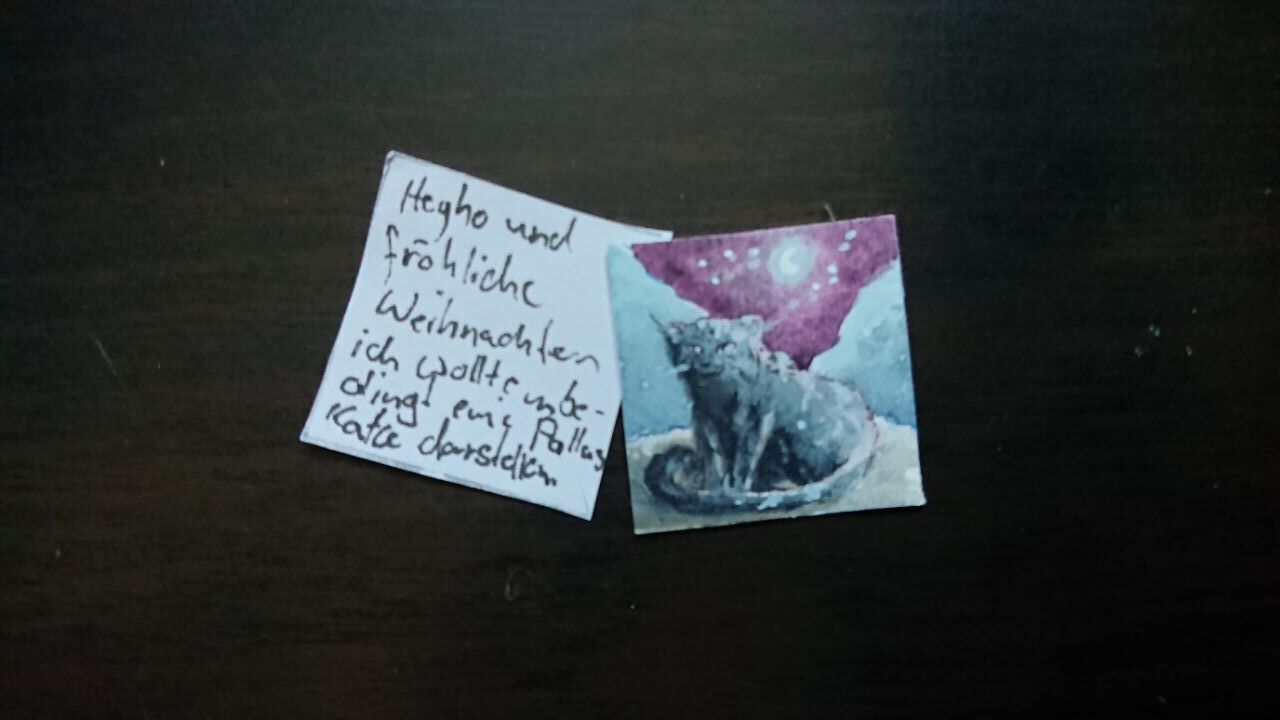 Heyho und
fröhliche
Weihnachten
ich wollte unbe-
dingt eine Pallas
Katze darstellen.